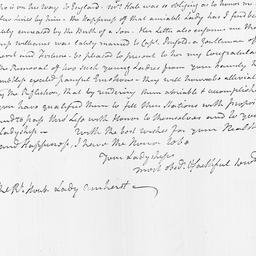 who is on his way to England. Mr. Hale was so obliging as to honor me
lines by him - the happiness of that amiable Lady has I find been
increased by the Birth of a Son. Her letter also informs me that
was lately married to Capt. a Gentleman of
and Fortune - be pleased to present to her my Congratulations
the removal of two such young Ladies from your family, th
would painful Emotions - they will however be alleviated
by the Reflection, that by rendering them amiable & accomplished
you have qualified them to fill their Stations with propriety
and to pass thro' Life with Honor to themselves and to your
Ladyship - With the best wishes for your Health
and Happiness, I have the Honor to be
Your Ladyship's
most obedt. & faithful
The Rt. Honble Lady Amherst